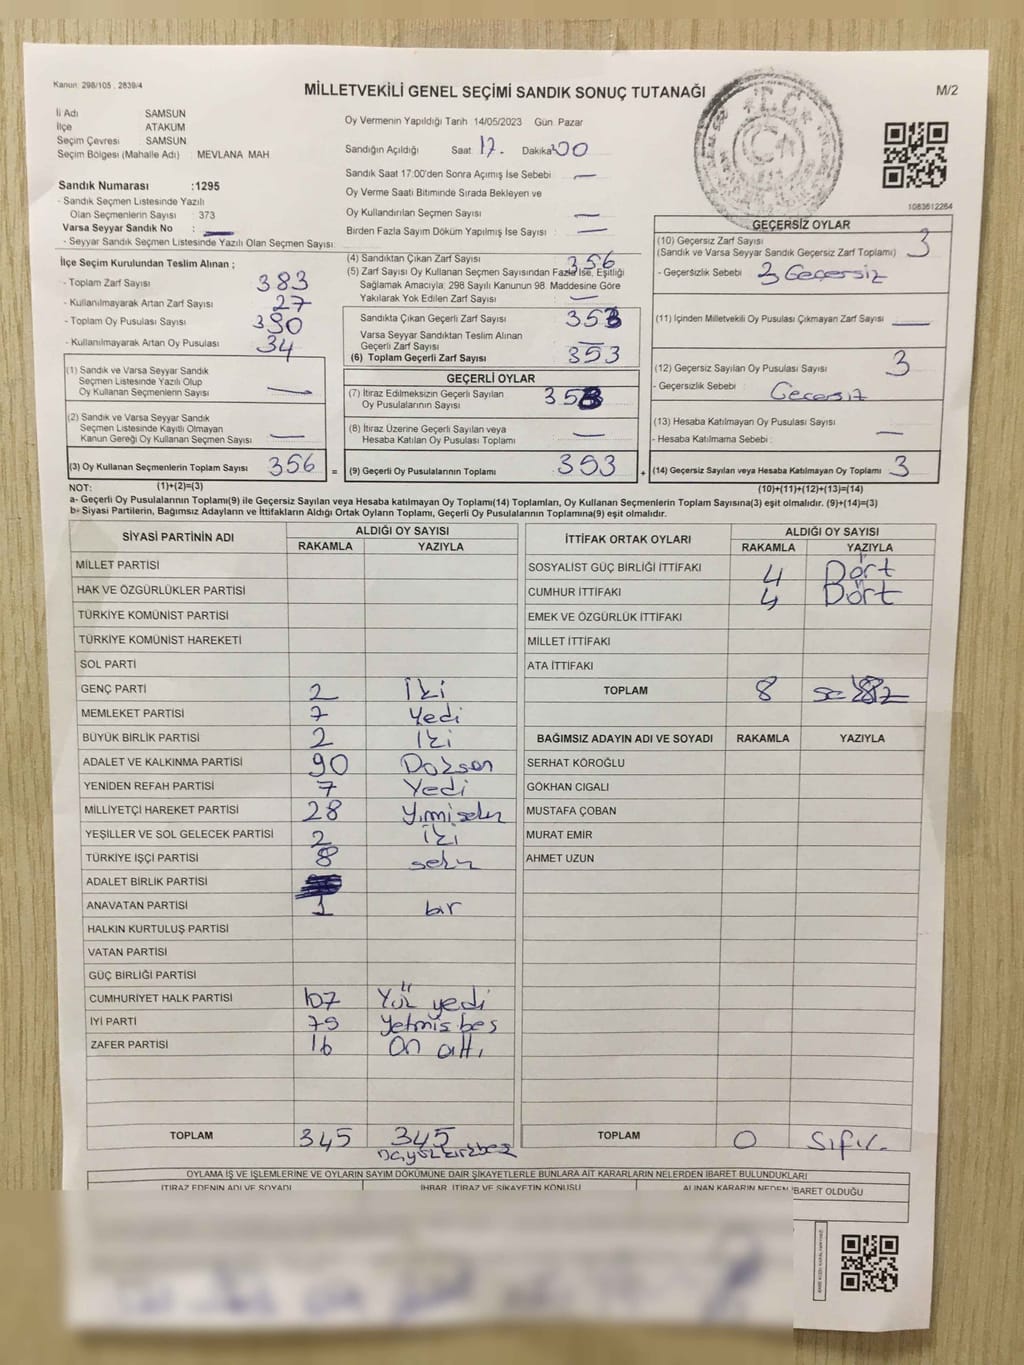 Kanun: 298/105 , 2839/4
MİLLETVEKİLİ GENEL SEÇİMİ SANDIK SONUÇ TUTANAĞI
M/2
İl Adı SAMSUN
İlçe ATAKUM
Seçim Çevresi SAMSUN
Seçim Bölgesi (Mahalle Adı) : MEVLANA MAH
Sandık Numarası :1295
- Sandık Seçmen Listesinde Yazılı
Olan Seçmenlerin Sayısı : 373
Varsa Seyyar Sandık No : —
- Seyyar Sandık Seçmen Listesinde Yazılı Olan Seçmen Sayısı
Oy Vermenin Yapıldığı Tarih 14/05/2023 Gün Pazar
Sandığın Açıldığı Saat 17. Dakika 00
Sandık Saat 17:00'den Sonra Açımış İse Sebebi —
Oy Verme Saati Bitiminde Sırada Bekleyen ve
Oy Kullandırılan Seçmen Sayısı —
Birden Fazla Sayım Döküm Yapılmış İse Sayısı : —
1083612284
İlçe Seçim Kurulundan Teslim Alınan ;
- Toplam Zarf Sayısı 383
- Kullanılmayarak Artan Zarf Sayısı 27
- Toplam Oy Pusulası Sayısı 390
- Kullanılmayarak Artan Oy Pusulası 34
(1) Sandık ve Varsa Seyyar Sandık
Seçmen Listesinde Yazılı Olup
Oy Kullanan Seçmenlerin Sayısı —
(2) Sandık ve Varsa Seyyar Sandık
Seçmen Listesinde Kayıtlı Olmayan
Kanun Gereği Oy Kullanan Seçmen Sayısı —
(3) Oy Kullanan Seçmenlerin Toplam Sayısı 356 =
(4) Sandıktan Çıkan Zarf Sayısı 356
(5) Zarf Sayısı Oy Kullanan Seçmen Sayısından Fazla İse, Eşitliği
Sağlamak Amacıyla; 298 Sayılı Kanunun 98. Maddesine Göre
Yakılarak Yok Edilen Zarf Sayısı : —
Sandıkta Çıkan Geçerli Zarf Sayısı 353
Varsa Seyyar Sandıktan Teslim Alınan
Geçerli Zarf Sayısı: —
(6) Toplam Geçerli Zarf Sayısı 353
GEÇERLİ OYLAR
(7) İtiraz Edilmeksizin Geçerli Sayılan
Oy Pusulalarının Sayısı 353
(8) İtiraz Üzerine Geçerli Sayılan veya
Hesaba Katılan Oy Pusulası Toplamı —
(9) Geçerli Oy Pusulalarının Toplamı 353 +
GEÇERSİZ OYLAR
(10) Geçersiz Zarf Sayısı 3
(Sandık ve Varsa Seyyar Sandık Geçersiz Zarf Toplamı)
- Geçersizlik Sebebi : 3 Geçersiz
(11) İçinden Milletvekili Oy Pusulası Çıkmayan Zarf Sayısı —
(12) Geçersiz Sayılan Oy Pusulası Sayısı 3
- Geçersizlik Sebebi : Geçersiz
(13) Hesaba Katılmayan Oy Pusulası Sayısı
- Hesaba Katılmama Sebebi : —
(14) Geçersiz Sayılan veya Hesaba Katılmayan Oy Toplamı 3
NOT: (1)+(2)=(3) (10)+(11)+(12)+(13)=(14)
a- Geçerli Oy Pusulalarının Toplamı(9) ile Geçersiz Sayılan veya Hesaba katılmayan Oy Toplamı(14) Toplamları, Oy Kullanan Seçmenlerin Toplam Sayısına(3) eşit olmalıdır. (9)+(14)=(3)
b- Siyasi Partilerin, Bağımsız Adayların ve İttifakların Aldığı Ortak Oyların Toplamı, Geçerli Oy Pusulalarının Toplamına(9) eşit olmalıdır.
SİYASİ PARTİNİN ADI ALDIĞI OY SAYISI
RAKAMLA YAZIYLA
MİLLET PARTİSİ
HAK VE ÖZGÜRLÜKLER PARTİSİ
TÜRKİYE KOMÜNİST PARTİSİ
TÜRKİYE KOMÜNİST HAREKETİ
SOL PARTİ
GENÇ PARTİ 2 İki
MEMLEKET PARTİSİ 7 Yedi
BÜYÜK BİRLİK PARTİSİ 2 İki
ADALET VE KALKINMA PARTİSİ 90 Doksan
YENİDEN REFAH PARTİSİ 7 Yedi
MİLLİYETÇİ HAREKET PARTİSİ 28 Yirmisekiz
YEŞİLLER VE SOL GELECEK PARTİSİ 2 İki
TÜRKİYE İŞÇİ PARTİSİ 8 sekiz
ADALET BİRLİK PARTİSİ
ANAVATAN PARTİSİ 1 bir
HALKIN KURTULUŞ PARTİSİ
VATAN PARTİSİ
GÜÇ BİRLİĞİ PARTİSİ
CUMHURİYET HALK PARTİSİ 107 Yüz yedi
İYİ PARTİ 75 Yetmiş beş
ZAFER PARTİSİ 16 On altı
TOPLAM 345 345
İTTİFAK ORTAK OYLARI ALDIĞI OY SAYISI
RAKAMLA YAZIYLA
SOSYALİST GÜÇ BİRLİĞİ İTTİFAKI 4 Dört
CUMHUR İTTİFAKI 4 Dört
EMEK VE ÖZGÜRLÜK İTTİFAKI
MİLLET İTTİFAKI
ATA İTTİFAKI
TOPLAM 8 sekiz
BAĞIMSIZ ADAYIN ADI VE SOYADI RAKAMLA YAZIYLA
SERHAT KÖROĞLU
GÖKHAN CIGALI
MUSTAFA ÇOBAN
MURAT EMİR
AHMET UZUN
TOPLAM 0 Sıfır
OYLAMA İŞ VE İŞLEMLERİNE VE OYLARIN SAYIM DÖKÜMÜNE DAİR ŞİKAYETLERLE BUNLARA AİT KARARLARIN NELERDEN İBARET BULUNDUKLARI
İTİRAZ EDENİN ADI VE SOYADI İHBAR, İTİRAZ VE ŞİKAYETİN KONUSU ALINAN KARARIN NEDEN İBARET OLDUĞU